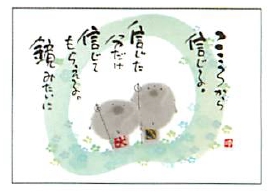 こころから
信じる。
信じた
分だけ
信じて
もらえる。
鏡みたいに